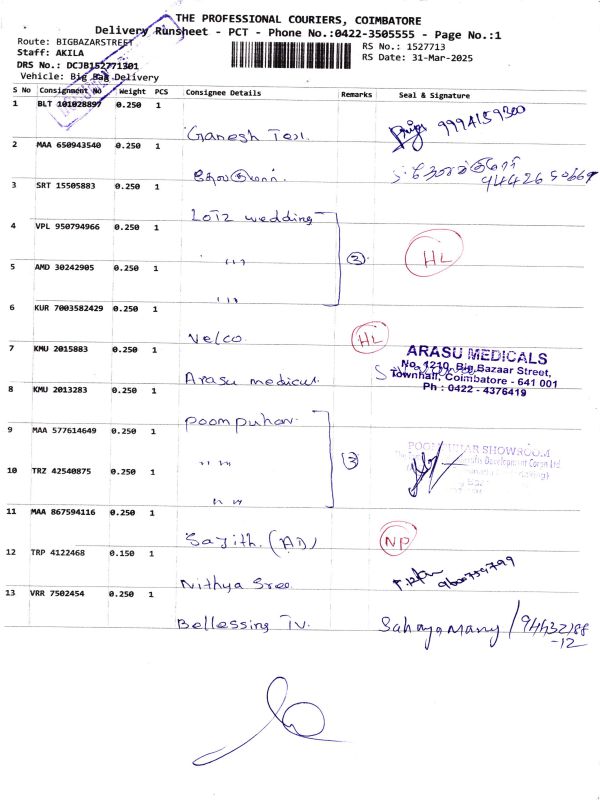 THE PROFESSIONAL COURIERS, COIMBATORE
Delivery Runsheet - PCT - Phone No.:0422-3505555 - Page No.:1
Route: BIGBAZARSTREET
RS No.: 1527713
Staff: AKILA
RS Date: 31-Mar-2025
DRS No.: DCJB152771301
Vehicle: Big Bag Delivery
S No Consignment No Weight PCS Consignee Details Remarks Seal & Signature
1 BLT 101028897 0.250 1
Ganesh Tex. 9994159300
2 MAA 650943540 0.250 1
3 SRT 15505883 0.250 1
Lotz wedding
4 VPL 950794966 0.250 1
" (3) HL
5 AMD 30242905 0.250 1
"
6 KUR 7003582429 0.250 1
Velco. HL
7 KMU 2015883 0.250 1
Arasu medical.
ARASU MEDICALS
No. 1210, Big Bazaar Street,
Townhall, Coimbatore - 641 001
Ph : 0422 - 4376419
8 KMU 2013283 0.250 1
Poompuhar
9 MAA 577614649 0.250 1
" " (3)
POOMPUHAR SHOWROOM
10 TRZ 42540875 0.250 1
" "
11 MAA 867594116 0.250 1
Sajith. (AD) NP
12 TRP 4122468 0.150 1
Nithya Sree
13 VRR 7502454 0.250 1
Bellessing Tv. Sahayamary / 94432188
-12